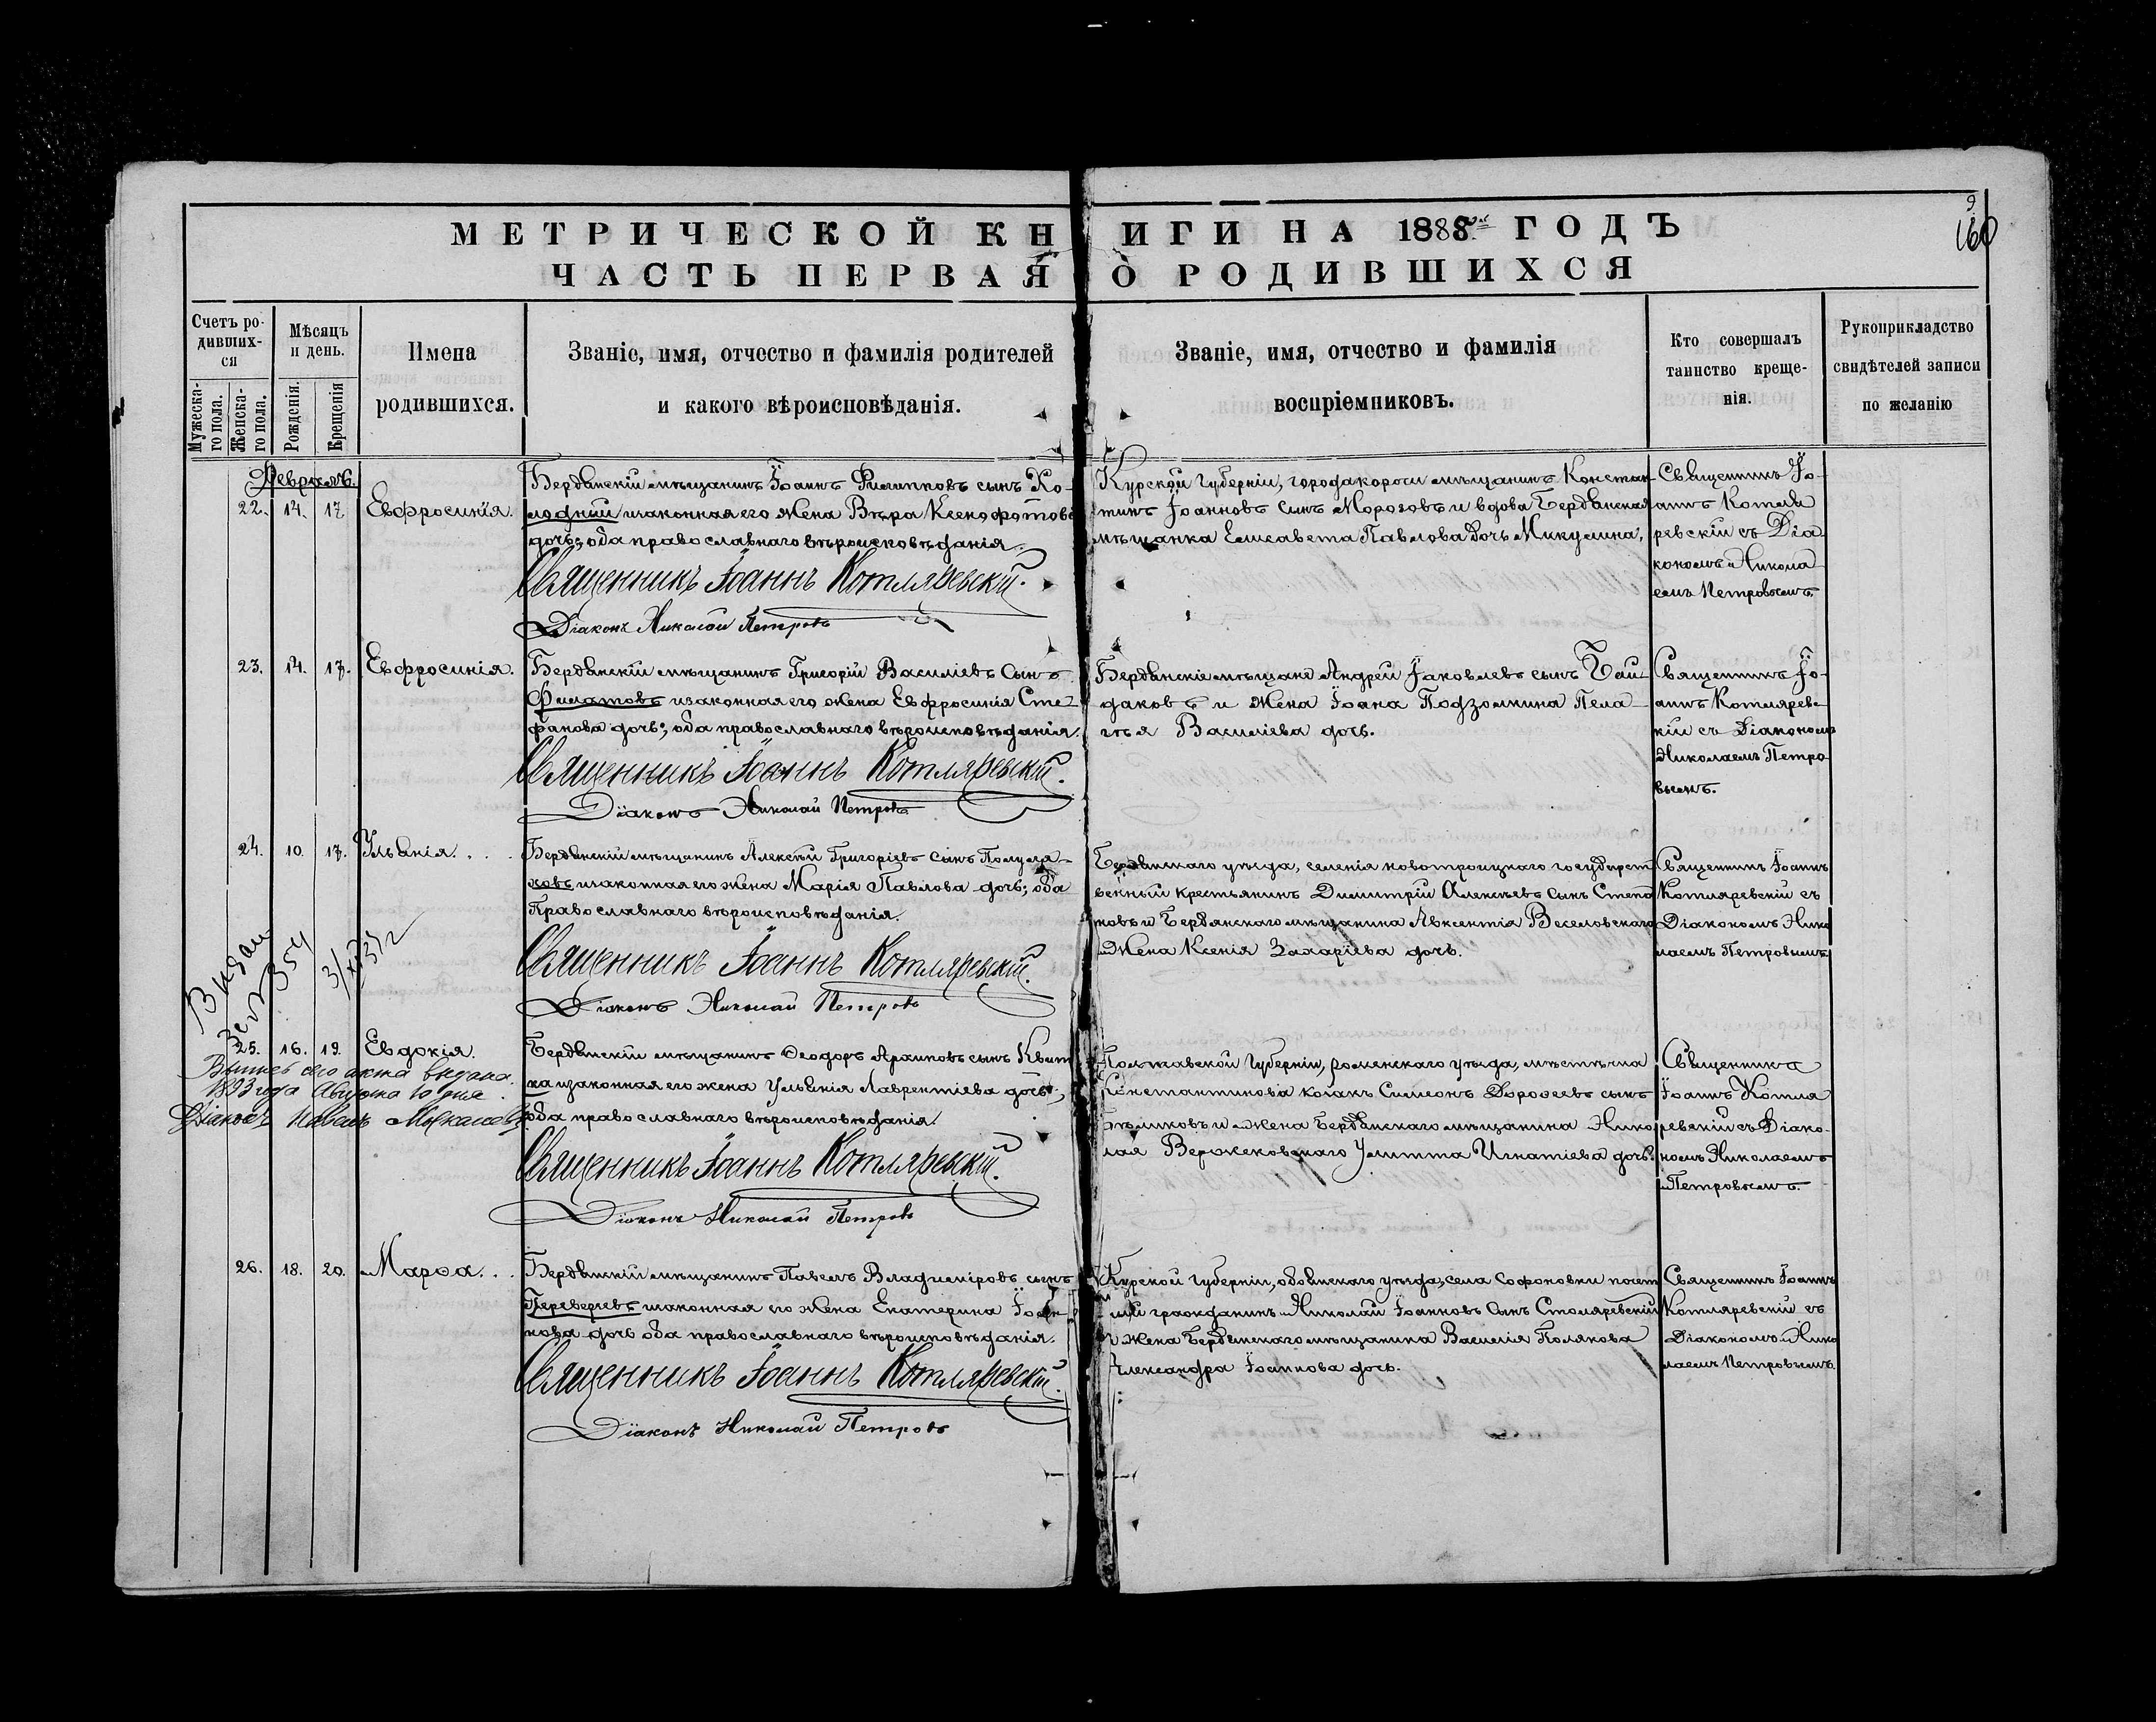 МЕТРИЧЕСКОЙ КНИГИ НА 1888 ГОДЪ
160
ЧАСТЬ ПЕРВАЯ О РОДИВШИХСЯ
Счетъ ро-
дивших-
ся
Мужеска-
го пола.
Женска-
го пола.
Мѣсяцъ
и день.
Рожденія.
Крещенія
Имена
родившихся.
Званіе, имя, отчество и фамилія родителей
и какого вѣроисповѣданія.
Званіе, имя, отчество и фамилія
воспріемниковъ.
Кто совершалъ
таинство креще-
нія.
Рукоприкладство
свидѣтелей записи
по желанію
Февраль.
22. 14. 17. Евфросинія.
Бердянскій мѣщанинъ Іоаннъ Филипповъ сынъ Хо-
лодній и законная его жена Вѣра Ксенофотова
дочь; оба православнаго вѣроисповѣданія.
Священникъ Іоаннъ Котляревскій.
Діаконъ Николай Петровъ
Курской Губерніи, города Короги мѣщанинъ Констан-
тинъ Іоанновъ сынъ Морозовъ и вдова Бердянская
мѣщанка Елисавета Павлова дочь Микулина,
Священникъ Іо-
аннъ Котля
ревскій съ Діа
кономъ Никола
емъ Петровымъ.
23. 14. 17. Евфросинія.
Бердянскій мѣщанинъ Григорій Василіевъ Сынъ
Филатовъ и законная его жена Евфросинія Сте-
фанова дочь; оба православнаго вѣроисповѣданія.
Священникъ Іоаннъ Котляревскій.
Діаконъ Николай Петровъ
Бердянскіе мѣщане Андрей Іаковлевъ сынъ Бай-
даковъ и Жена Іоана Подзолкина Пела-
гѣя Василіева дочь.
Священникъ Іо-
аннъ Котляревс
кій съ Діакономъ
Николаемъ Петро-
вымъ.
24. 10. 17. Ульянія.
Бердянскій мѣщанинъ Алексѣй Григоріевъ сынъ Полуля-
ховъ и законная его жена Марія Павлова дочь; оба
Православнаго вѣроисповѣданія.
Священникъ Іоаннъ Котляревскій.
Діаконъ Николай Петровъ
Бердянскаго уѣзда, селенія новотроицкаго государст
венный крестьянинъ Димитрій Алексѣевъ Сынъ Степа
новъ и Бердянскаго мѣщанина Авксентія Веселовскаго
Жена Ксенія Захаріева дочь.
Священникъ Іоаннъ
Котляревскій съ
Діакономъ Нико
лаемъ Петровымъ.
25. 16. 19. Евдокія.
Выпись сего акта выдана
1893 года Августа 10 дня
Діаконъ Павелъ
Бердянскій мѣщанинъ Ѳеодоръ Архиповъ сынъ Квит
ка и законная его жена Ульянія Лаврентіева дочь;
оба православнаго вѣроисповѣданія.
Священникъ Іоаннъ Котляревскій.
Діаконъ Николай Петровъ
Полтавской Губерніи, роменскаго уѣзда, мѣстечка
Константинова козакъ Симеонъ Дороѳеевъ сынъ
Бѣликовъ и жена Бердянскаго мѣщанина Нико
лая Вержековскаго Улитта Игнатіева дочь.
Священникъ
Іоаннъ Котля
ревскій съ Діако-
номъ Николаемъ
Петровымъ.
26. 18. 20. Марѳа.
Бердянскій мѣщанинъ Павелъ Владиміровъ сынъ
Переверзевъ и законная его жена Екатерина Іоан-
нова дочь оба православнаго вѣроисповѣданія.
Священникъ Іоаннъ Котляревскій.
Діаконъ Николай Петровъ
Курской губерніи, обоянскаго уѣзда, села Софоновки почет
ный гражданинъ Николай Іоанновъ Сынъ Столяревскій
и жена Бердянскаго мѣщанина Василія Полякова
Александра Іоаннова дочь.
Священникъ Іоаннъ
Котляревскій съ
Діакономъ Нико
лаемъ Петровымъ.